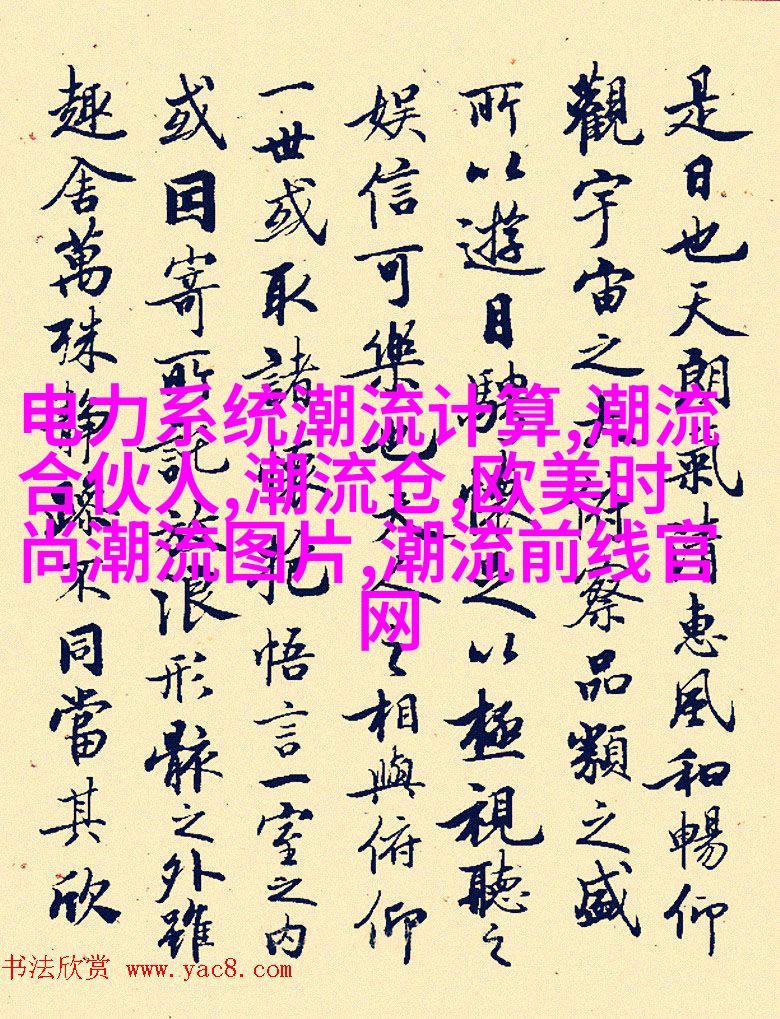 是日也天朗氣清惠風和暢仰
觀宇宙之大俯察品類之盛
所以遊目騁懷足以極視聽之
娛信可樂也夫人之相與俯仰
一世或取諸懷抱悟言一室之内
或因寄所託放浪形骸之外雖
趣舍萬殊静躁不同當其欣
电力系统潮流计算,潮流
合伙人,潮流仓,欧美时
尚潮流图片,潮流前线官
网
书法欣赏 www.yac8.com